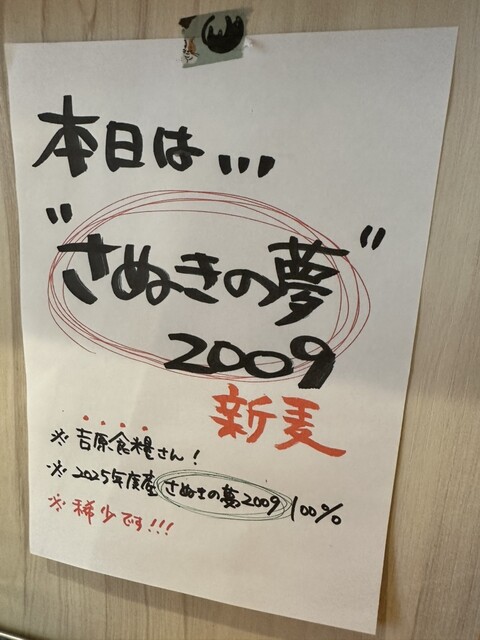 本日は、、、
"さぬきの夢"
2009
新麦
※ 吉原食糧さん!
※ 2025年度産 さぬきの夢2009 100%
※ 稀少です!!!